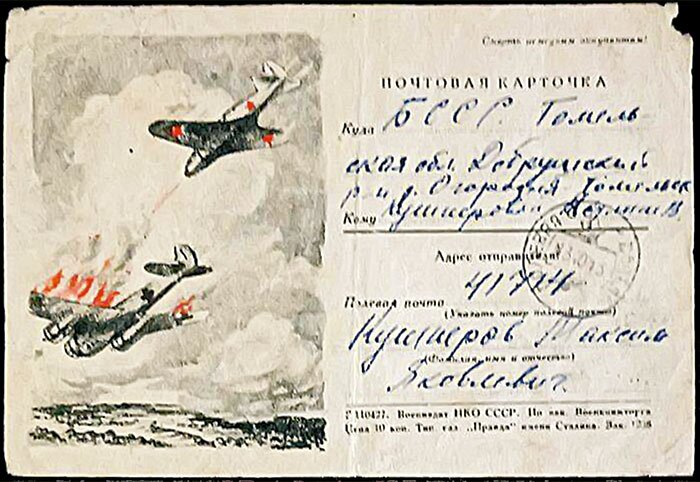 Смерть немецким оккупантам!
ПОЧТОВАЯ КАРТОЧКА
Куда БССР. Гомель-
ская обл. Добрушский
р-н д. Огородня-Гомельск
Кому Кушнеровой
Адрес отправителя:
41794
Полевая почта
(Указать номер полевой почты)
Кушнеров Максим
(Фамилия, имя и отчество)
Яковлевич.
Г110427. Воениздат НКО СССР. По зак. Военкниготорга
Цена 10 коп. Тип. газ. „Правда“ имени Сталина. Зак. 1238